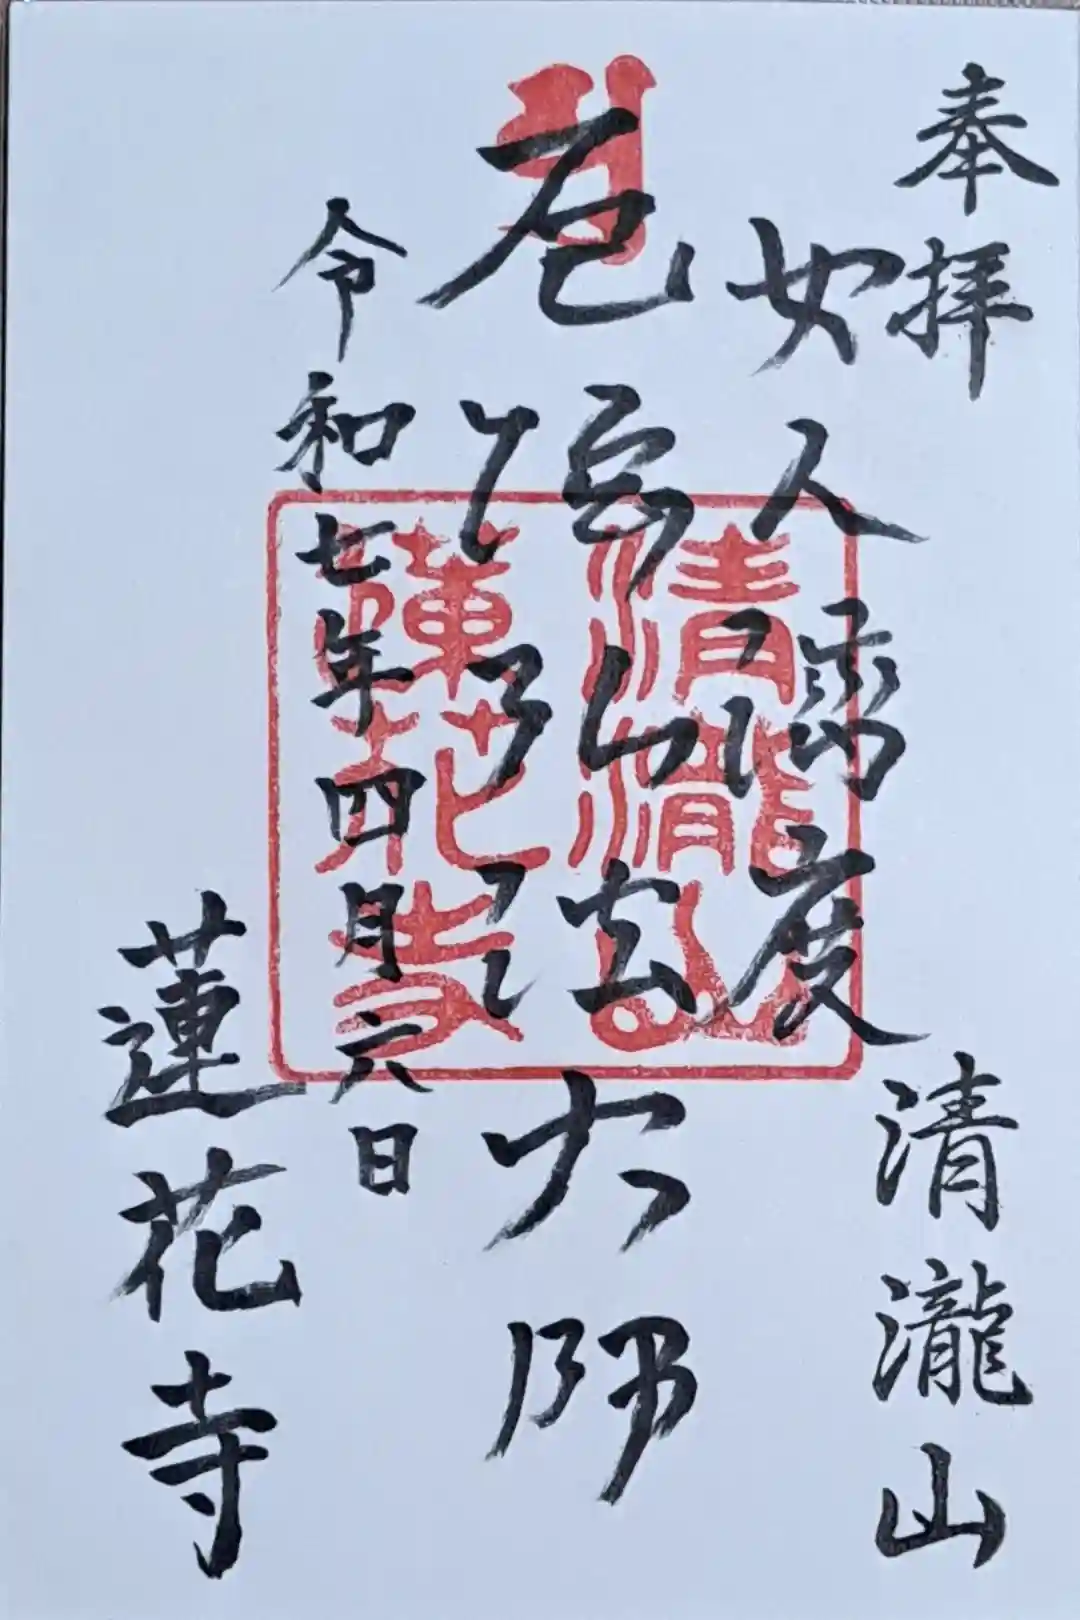 奉拝
清瀧山
女人濟度
厄除弘法大師
令和七年四月六日
蓮花寺
清瀧山
蓮花寺